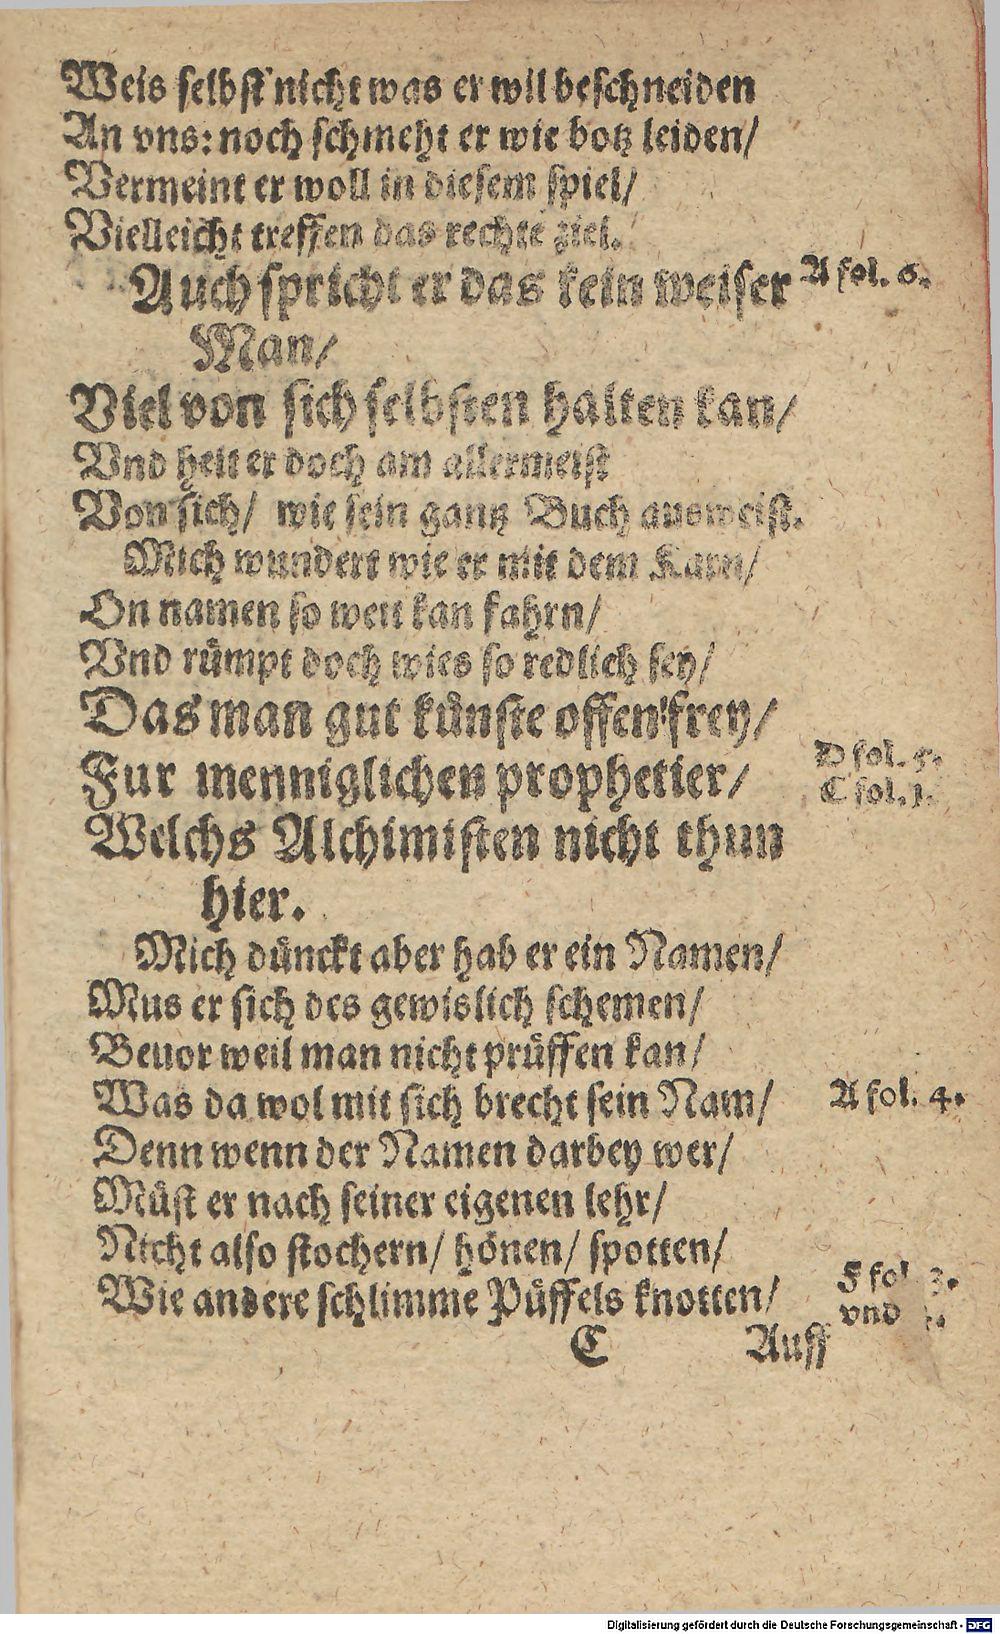 Weis selbst nicht was er wil beschneiden
An vns: noch schmeht er wie botz leiden/
Vermeint er woll in diesem spiel/
Vielleicht treffen das rechte ziel.
Auch spricht er das kein weiser
Man/
A fol. 6.
Viel von sich selbsten halten kan/
Vnd helt er doch am allermeist
Von sich/ wie sein gantz Buch ausweist.
Mich wundert wie er mit dem Karn/
On namen so weit kan fahrn/
Vnd rümpt doch wies so redlich sey/
Das man gut künste offen frey/
Fur menniglichen prophetier/
D fol. 5.
C fol. 1.
Welchs Alchimisten nicht thun
hier.
Mich dünckt aber hab er ein Namen/
Mus er sich des gewislich schemen/
Beuor weil man nicht prüffen kan/
Was da wol mit sich brecht sein Nam/
A fol. 4.
Denn wenn der Namen darbey wer/
Müst er nach seiner eigenen lehr/
Nicht also stochern/ hönen/ spotten/
Wie andere schlimme Püffels knotten/
F fol. 3.
vnd
C
Auff
Digitalisierung gefördert durch die Deutsche Forschungsgemeinschaft - DFG